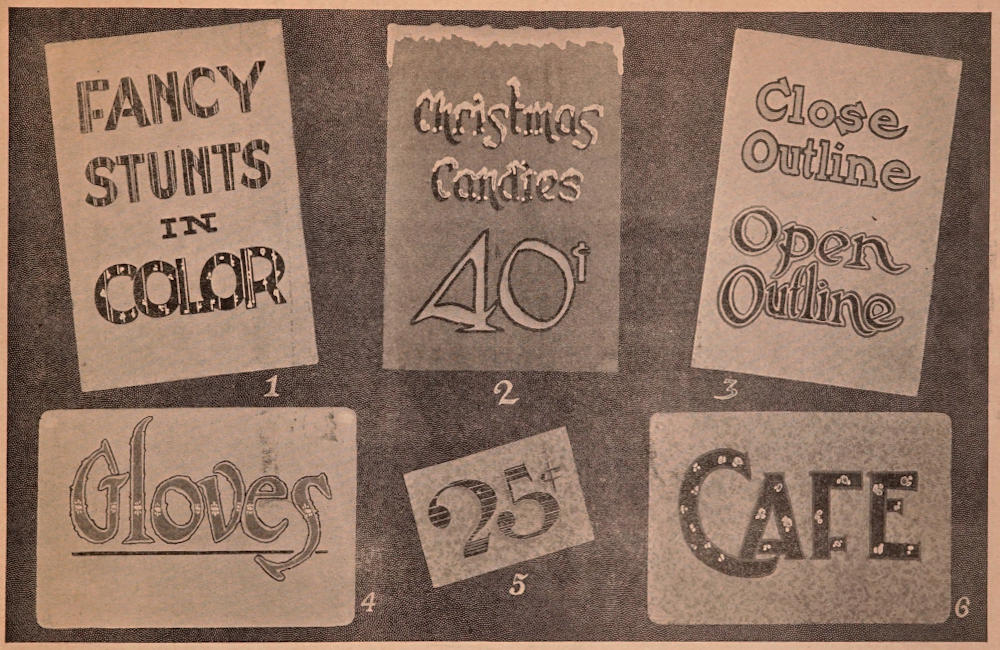 FANCY
STUNTS
IN
COLOR
1
Christmas
Candies
40¢
2
Close
Outline
Open
Outline
3
Gloves
4
25¢
5
CAFE
6